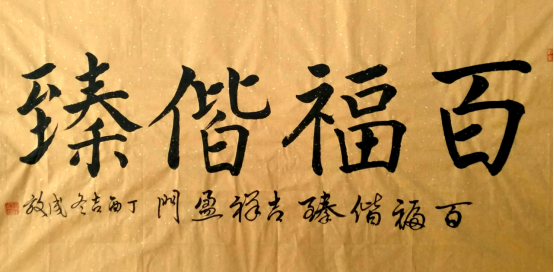 百福偕臻
百福偕臻吉祥盈門丁酉吉冬成放